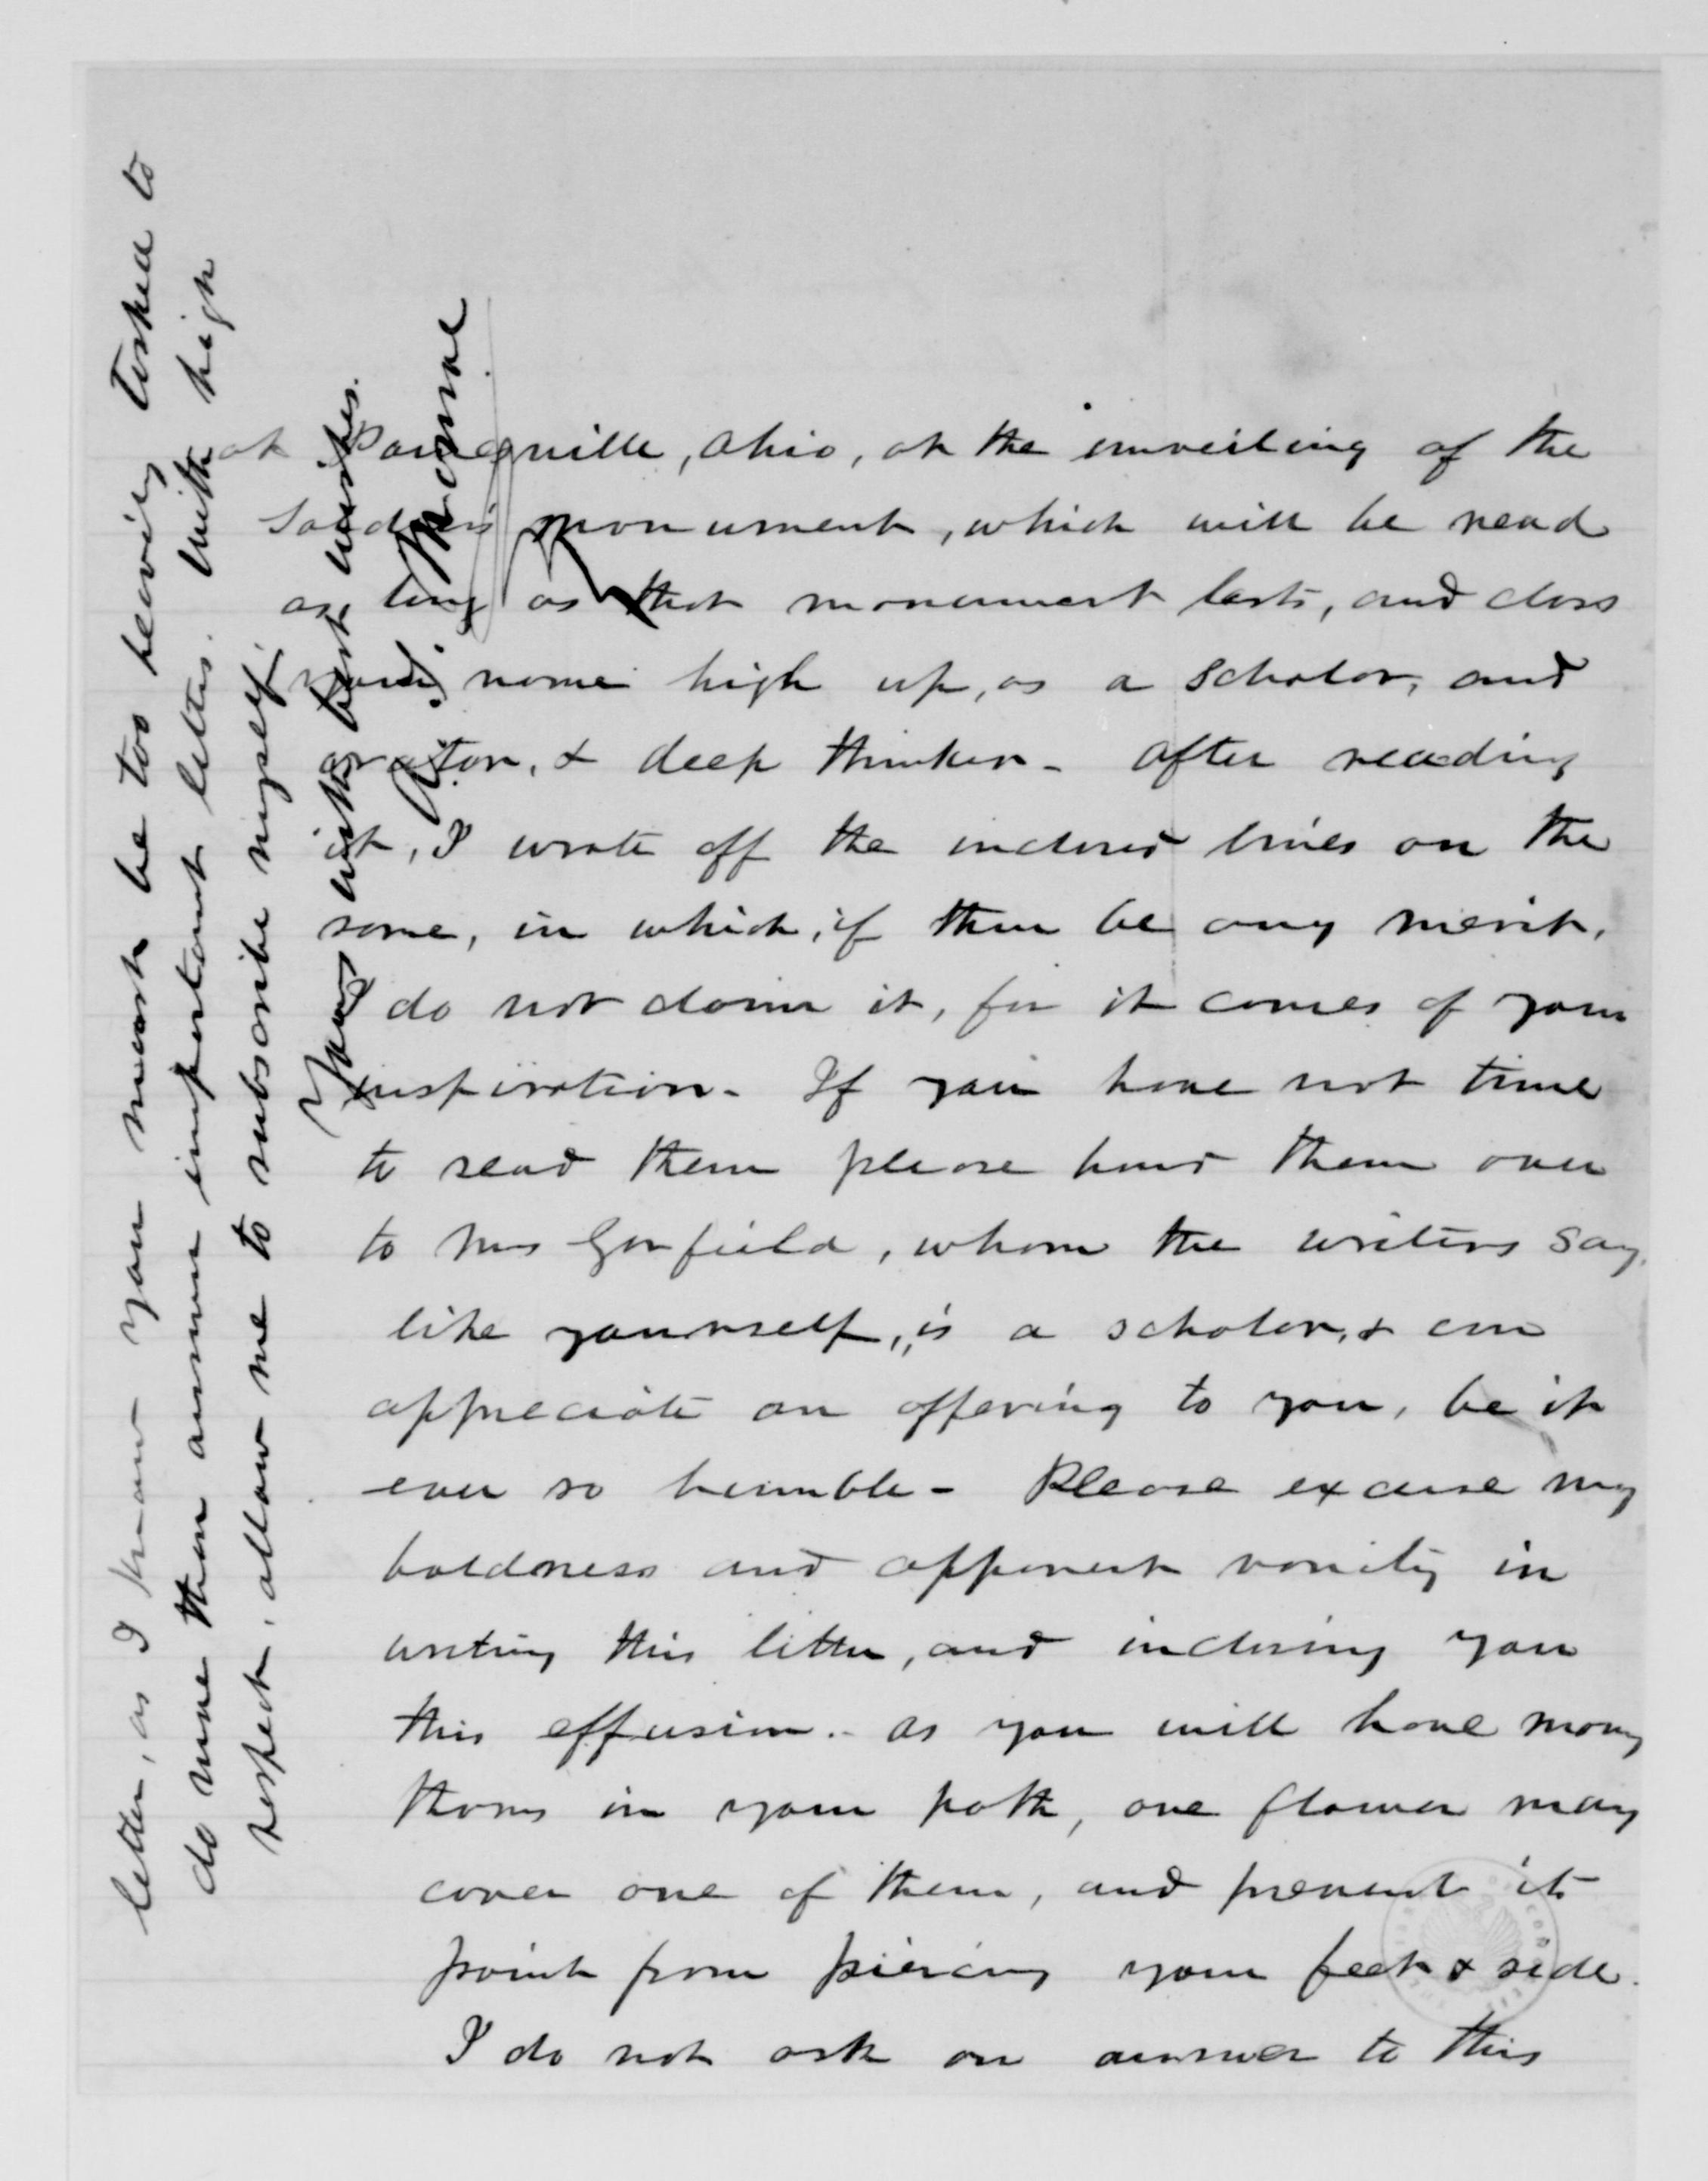 at Painesville, Ohio, at the unveiling of the
Soldiers monument, which will be read
as long as that monument lasts, and class
your name high up, as a scholar, and
orator, & deep thinker - After reading
it, I wrote off the inclosed lines on the
same, in which, if there be any merit,
I do not claim it, for it comes of your
inspiration - If you have not time
to read them please hand them over
to Mrs Garfield, whom the writers say,
like yourself, is a scholar, & can
appreciate an offering to you, be it
ever so humble - Please excuse my
boldness and apparent vanity in
writing this letter, and inclosing you
this effusion - as you will have many
thorns in your path, one flower may
cover one of them, and prevent its
point from piercing your feet & side.
I do not ask an answer to this
letter, as I know you must be too heavily tasked to
do more than answer important letters. With high
respect, allow me to subscribe myself
Yours with best wishes.